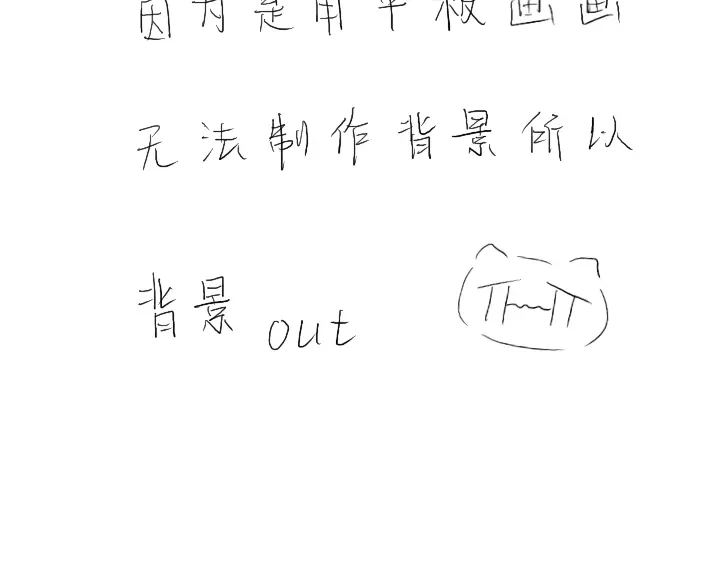 因为是用平板画画
无法制作背景所以
背景out